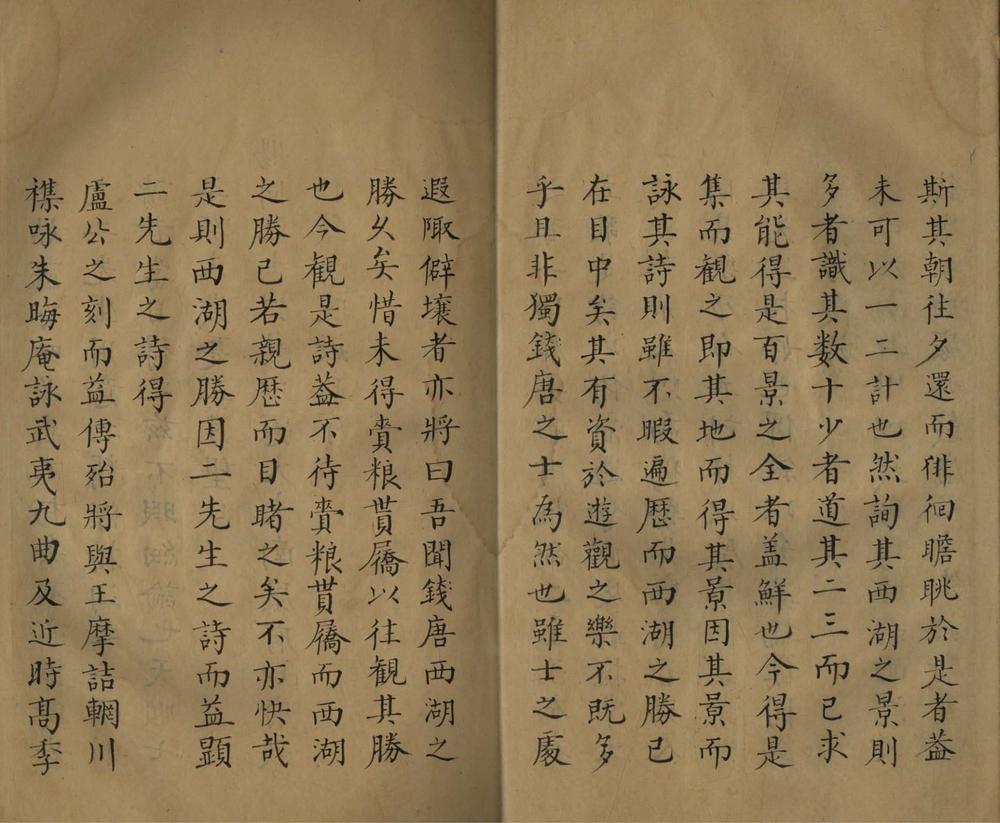 斯其朝往夕還而徘徊瞻眺於是者葢
未可以一二計也然詢其西湖之景則
多者識其数十少者道其二三而已求
其能得是百景之全者盖鮮也今得是
集而觀之即其地而得其景因其景而
詠其詩則雖不暇遍歷而西湖之勝已
在目中矣其有資於遊觀之樂不既多
乎且非獨錢唐之士為然也雖士之處
遐陬僻壤者亦將曰吾聞錢唐西湖之
勝久矣惜未得賫粮貰屩以往觀其勝
也今観是詩葢不待賫粮貰屩而西湖
之勝已若親歷而目睹之矣不亦快哉
是則西湖之勝因二先生之詩而益顕
二先生之詩得
盧公之刻而益傳殆將與王摩詰輞川
襍咏朱晦庵詠武夷九曲及近時髙季